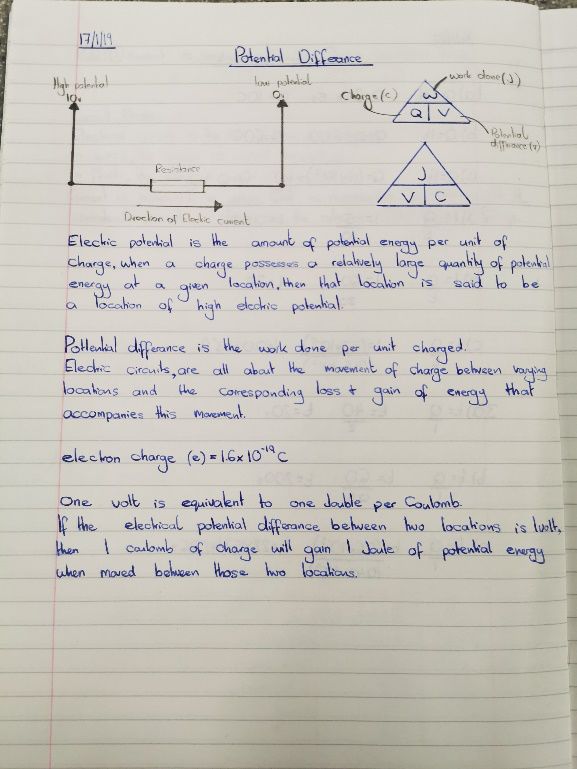 17/1/19
Potential Differance
High potential
10v
low potential
0v
Resistance
Direction of Electric current
work done (J)
Charge (C)
W
Q V
Potential
differance (v)
J
V C
Electric potential is the amount of potential energy per unit of
charge, when a charge possesses a relatively large quantity of potential
energy at a given location, then that location is said to be
a location of high electric potential.
Pottential differance is the work done per unit charged.
Electric circuits, are all about the movement of charge between varying
locations and the corresponding loss + gain of energy that
accompanies this movement.
electron charge (e) = 1.6 x 10⁻¹⁹ C
One volt is equivalent to one Jouble per Coulomb.
If the electrical potential differance between two locations is 1volt,
then 1 coulomb of charge will gain 1 Joule of potential energy
when moved between those two locations.